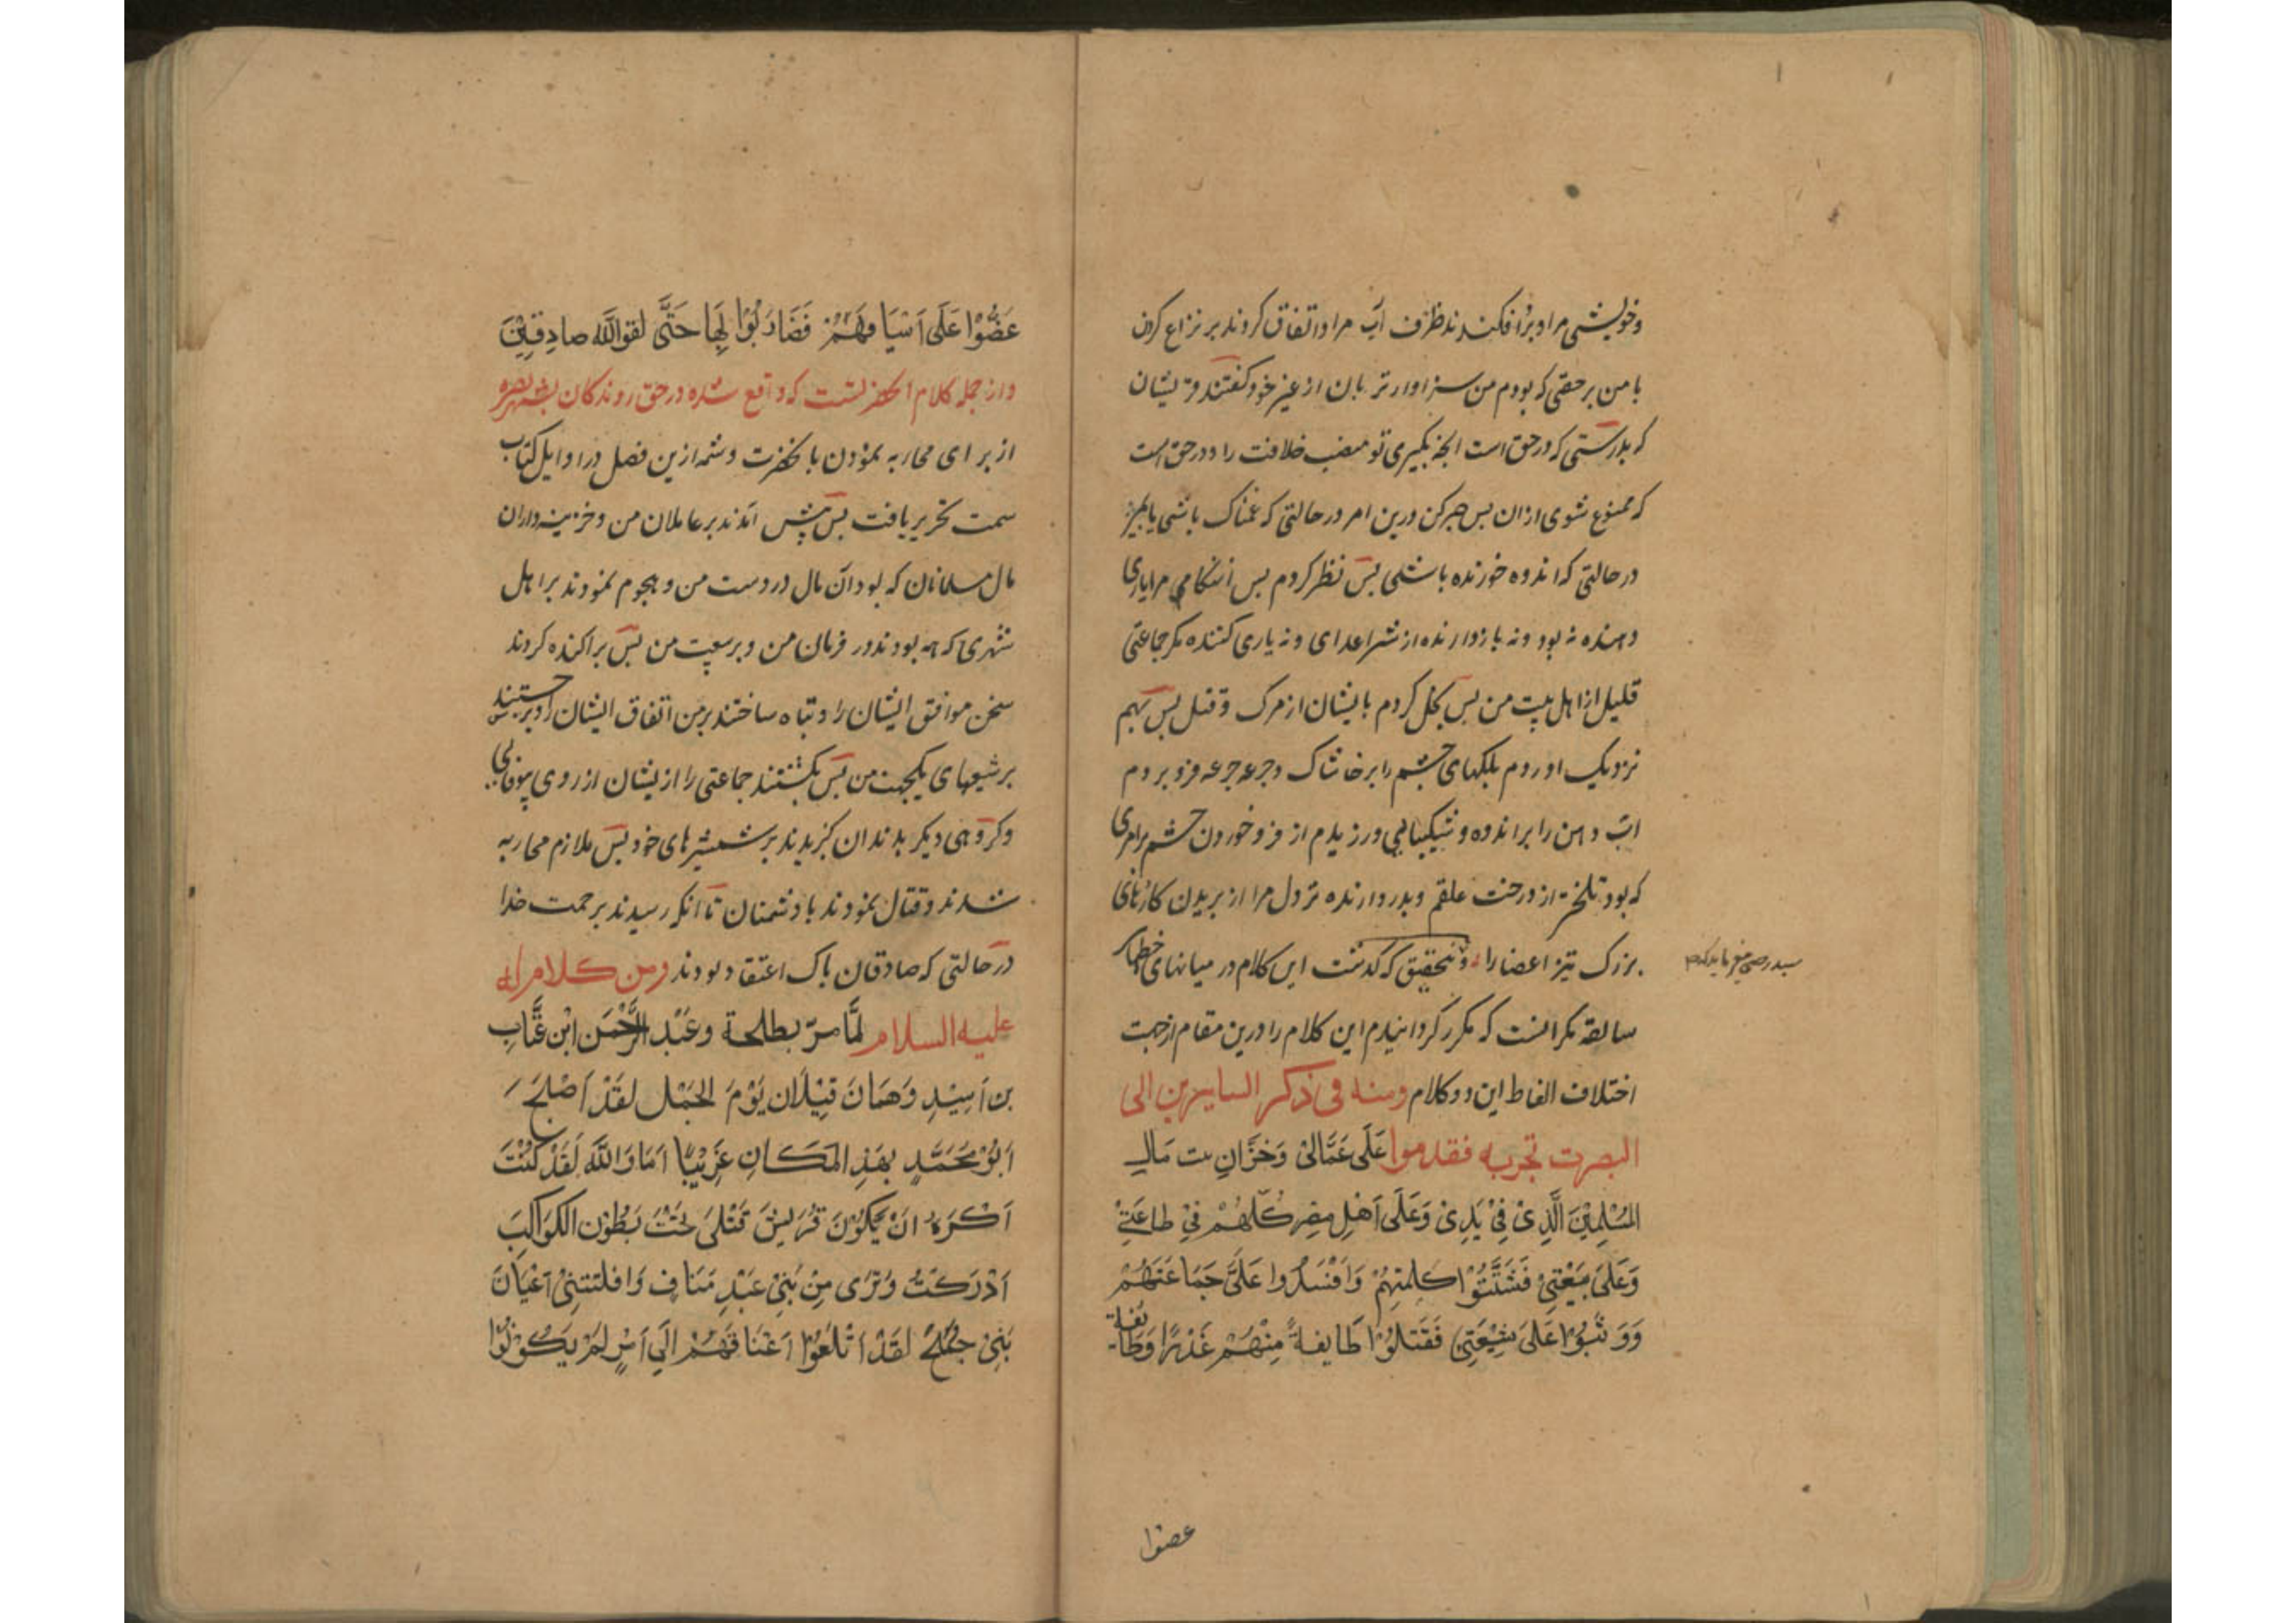 وخویشی مرا و برو افکندند ظرف آب مرا و اتفاق کردند بر نزاع کردن
با من بر حقی که بودم من سزاوارتر بان از غیر خود و گفتند قریشان
که بدرستی که در حق است انچه بگیری تو منصب خلافت را و در حق است
که ممنوع شوی ازان بس صبر کن درین امر در حالتی که غمناک باشی یا بمیر
در حالتی که اندوه خورنده باشی بس نظر کردم بس آنگاهی مرا یاری
دهنده نه بود و نه بازدارنده از شر اعدای و نه یاری کننده مکر جماعتی
قلیل از اهل بیت من بس بخل کردم بایشان از مرک و قتل بس بهم
نزدیک اوردم بلکهای چشم را بر خاشاک و جرعه جرعه فرو بردم
اب دهن را بر اندوه و شکیبایی ورزیدم از فرو خوردن خشم بر امری
که بود تلختر از درخت علقم و بدرد ارنده تر دل مرا از بریدن کاردهای
بزرک تیز اعضا را و بتحقیق که گذشت این کلام در میانهای خطبهای
سید رضی میفرماید که
سابقه مکر انست که مکرر کردانیدم این کلام را درین مقام از جهت
اختلاف الفاظ این دو کلام ومنه فی ذکر السایرین الی
البصرت لحربه فقدموا عَلَى عُمَّالِیْ وَخُزَّانِ بیت مَالِ
المُسْلِمِیْنَ الَّذِیْ فِیْ یَدِیْ وَعَلَى اَهْلِ مِصْرٍ كُلُّهُمْ فِیْ طَاعَتِیْ
وَعَلَى بَیْعَتِیْ فَشَتَّتُوْا كَلِمَتَهُمْ وَاَفْسَدُوا عَلَیَّ جَمَاعَتَهُمْ
وَوَثَبُوْا عَلَى شِیْعَتِیْ فَقَتَلُوْا طَایفةً مِنْهُمْ غَدْرًا وَطَایفة
عضوا
عَضُّوْا عَلَى اَسْیَافِهِمْ فَضَارَبُوْا بِهَا حَتَّى لقوا اللّٰه صادِقِیْنَ
و از جمله کلام انحضرتست که واقع شده در حق روندکان بشهر بصره
از برای محاربه نمودن با انحضرت و شمه ازین فصل در اوایل کتاب
سمت تحریر یافت بس پیش آمدند بر عاملان من و خزینه داران
مال مسلمانان که بود آن مال در دست من و هجوم نمودند بر اهل
شهری که همه بودند در فرمان من و بر بیعت من بس پراکنده کردند
سخن موافق ایشان را و تباه ساختند بر من اتفاق ایشان را و برجستند
بر شیعهای یکجهت من بس بکشتند جماعتی را از ایشان از روی بیوفایی
و کروهی دیکر بدندان کزیدند بر شمشیرهای خود بس ملازم محاربه
شدند و قتال نمودند با دشمنان تا انکه رسیدند برحمت خدا
در حالتی که صادقان پاک اعتقاد بودند ومن کلام له
علیه السلام لَمَّا مرّ بطلحة وعَبْد الرَّحْمٰن ابْن عَتَّابِ
بن اَسِیْدٍ وَهُمَا قَتِیْلَانِ یَوْمَ الجَمَل لَقَدْ اَصْبَحَ
اَبُوْ مُحَمَّدٍ بِهٰذِ المَكَانِ غَرِیْبًا اَمَا وَاللّٰهِ لَقَدْ كُنْتُ
اَكْرَهُ اَنْ یَكُوْنَ قُرَیْش قَتْلَى تَحْتَ بُطُوْنِ الْكَوَاكِبِ
اَدْرَكْتُ وِتْرِى مِنْ بَنِیْ عَبْدِ مَنَافٍ وَافلتتنِیْ اَعْیَانُ
بَنِیْ جُمَحٍ لَقَدْ اَتْلَعُوْا اَعْنَاقَهُمْ اِلَى اَمْرٍ لَمْ یَكُوْنُوْا